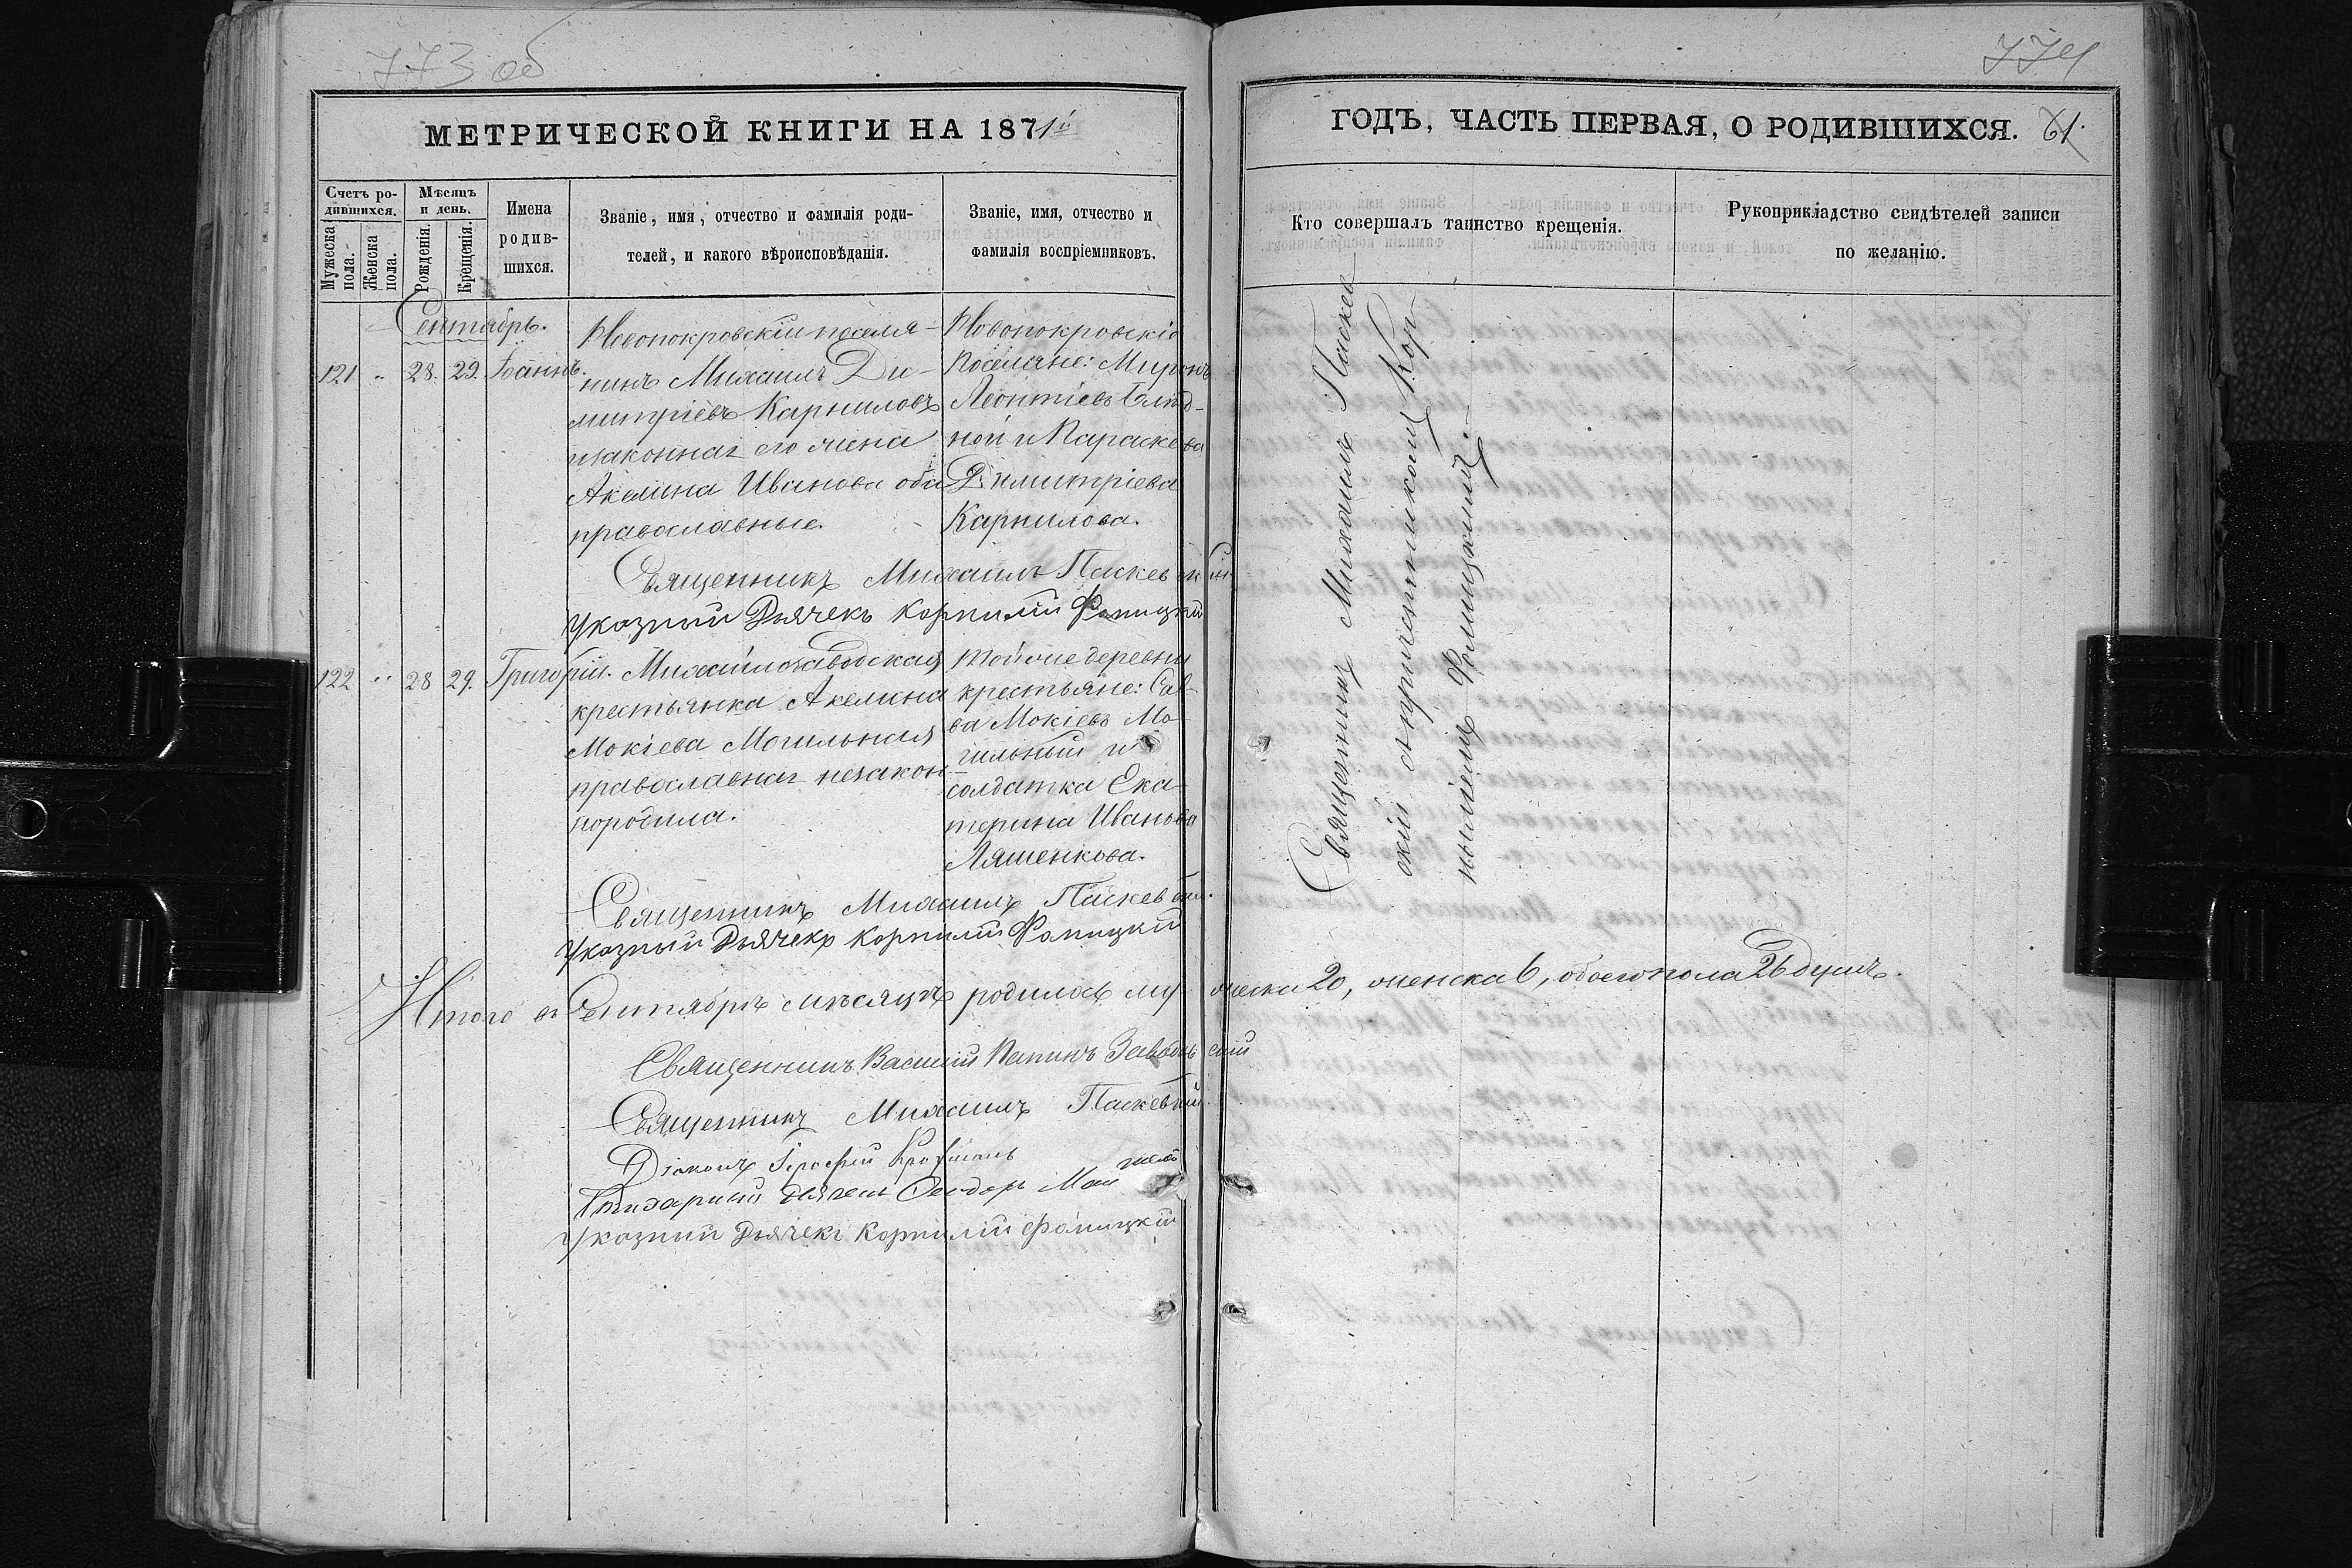 773 об
МЕТРИЧЕСКОЙ КНИГИ НА 1871й
Счетъ ро-
дившихся.
Мужеска
пола.
Женска
пола.
Мѣсяцъ
и день.
Рожденія.
Крещенія.
Имена
родив-
шихся.
Званіе, имя, отчество и фамилія роди-
телей, и какого вѣроисповѣданія.
Званіе, имя, отчество и
фамилія воспріемниковъ.
Сентябрь.
121 " 28. 29. Іоаннъ.
Новопокровскій поселя-
нинъ Михаилъ Ди-
митріевъ Карниловъ
и законная его жена
Акелина Иванова оба
православные.
Новопокровскіе
поселяне: Миронъ
Леонтіевъ Блѣд-
ной и Параскева
Димитріева
Карнилова.
Священникъ Михаилъ Паскевскій
Указный Дьячекъ Корнилій Фомицкій
122 " 28 29. Григорій.
Михайлозаводская
крестьянка Акелина
Мокіева Могильная
православная незакон
породила.
Той же деревни
крестьяне: Сав-
ва Мокіевъ Мо-
гильный и
солдатка Ека-
терина Иванова
Ляшенкова.
Священникъ Михаилъ Паскевскій.
Указный Дьячекъ Корнилій Фомицкій
Итого въ Сентябрѣ мѣсяцѣ родилось му-
Священникъ Василій Заводскій
Священникъ Михаилъ Паскевскій.
Діаконъ
Стихарный дьячекъ Феодоръ
Указный Дьячекъ Корнилій Фомицкій
774
ГОДЪ, ЧАСТЬ ПЕРВАЯ, О РОДИВШИХСЯ. 61.
Кто совершалъ таинство крещенія.
Рукоприкладство свидѣтелей записи
по желанію.
Священникъ Михаилъ Паскев-
скій с причетникомъ Кор-
ниліемъ Фомицкимъ.
жеска 20, женска 6, обоего пола 26 душъ.